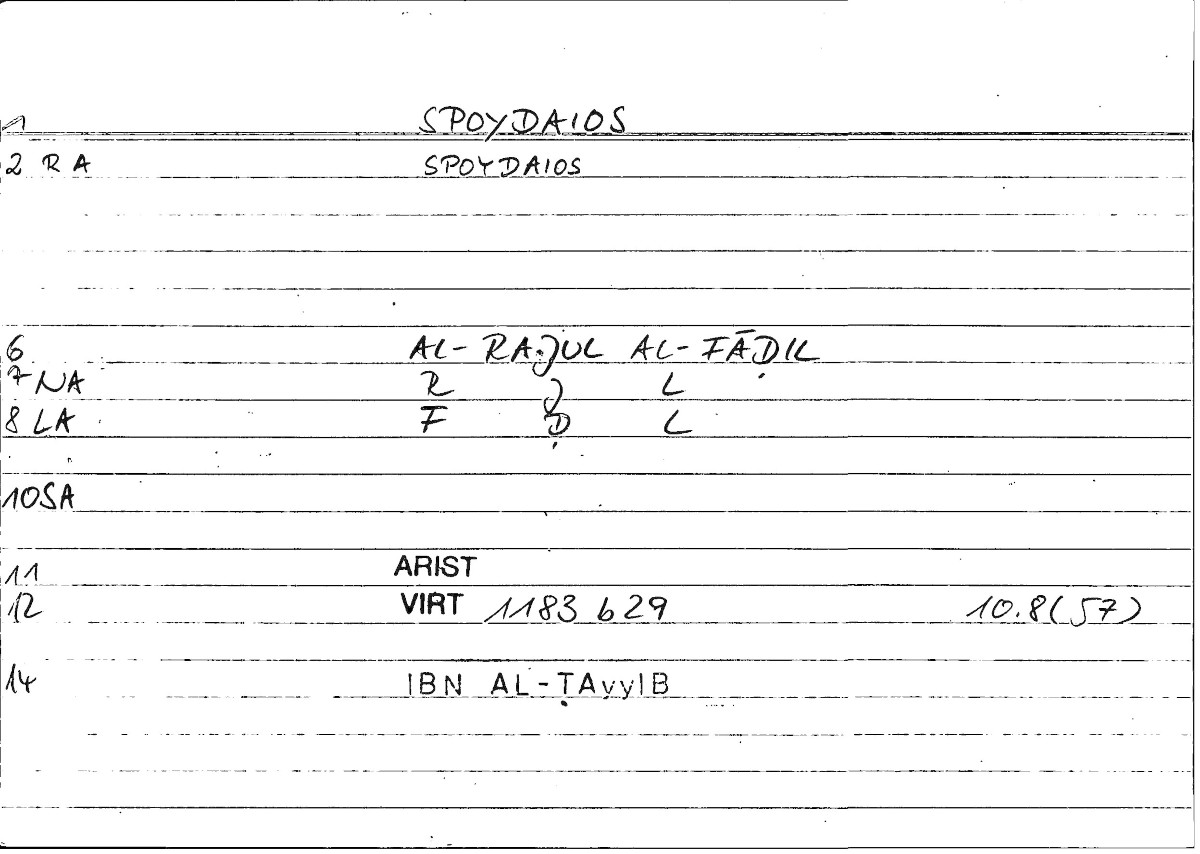 1 SPOYDAIOS
2 R A SPOYDAIOS
6 AL-RAJUL AL-FĀḌIL
7 NA R J L
8 LA F Ḍ L
10 SA
11 ARIST
12 VIRT 1183 b 29 10.8(57)
14 IBN AL-ṬAyyIB